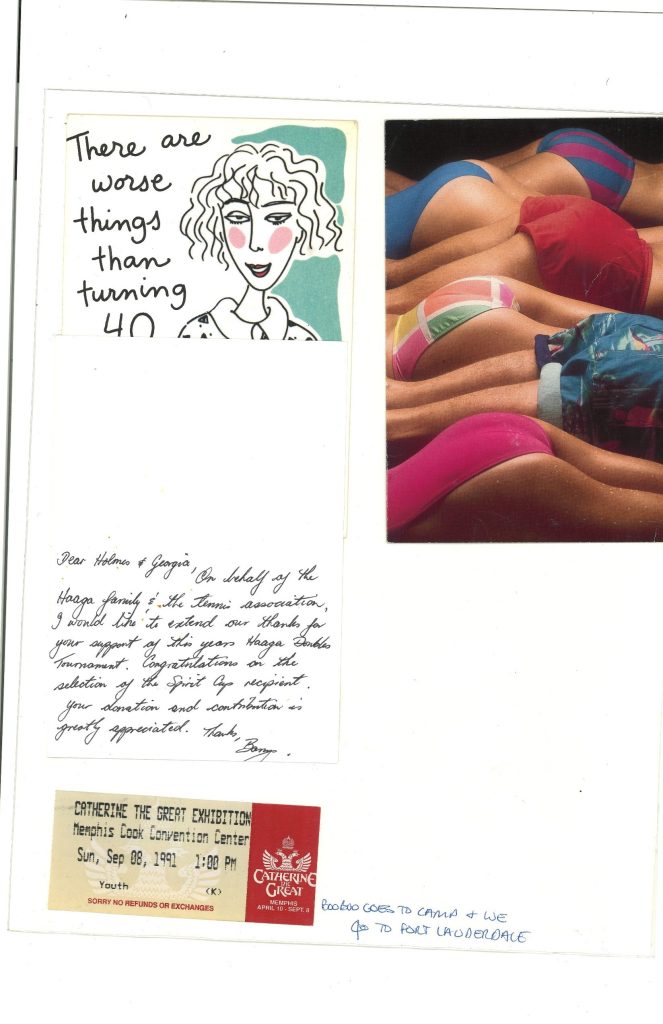 There are
worse
things
than
turning
40
Dear Holmes & Georgia,
On behalf of the
Haaga family & the tennis association,
I would like to extend our thanks for
your support of this years Haaga Doubles
Tournament. Congratulations on the
selection of the Spirit Cup recipient.
Your donation and contribution is
greatly appreciated. Thanks,
CATHERINE THE GREAT EXHIBITION
Memphis Cook Convention Center
Sun, Sep 08, 1991 1:00 PM
Youth <K>
SORRY NO REFUNDS OR EXCHANGES
CATHERINE
THE
GREAT
MEMPHIS
APRIL 18 - SEPT. 8
BOOBOO GOES TO CAMP & WE
GO TO FORT LAUDERDALE